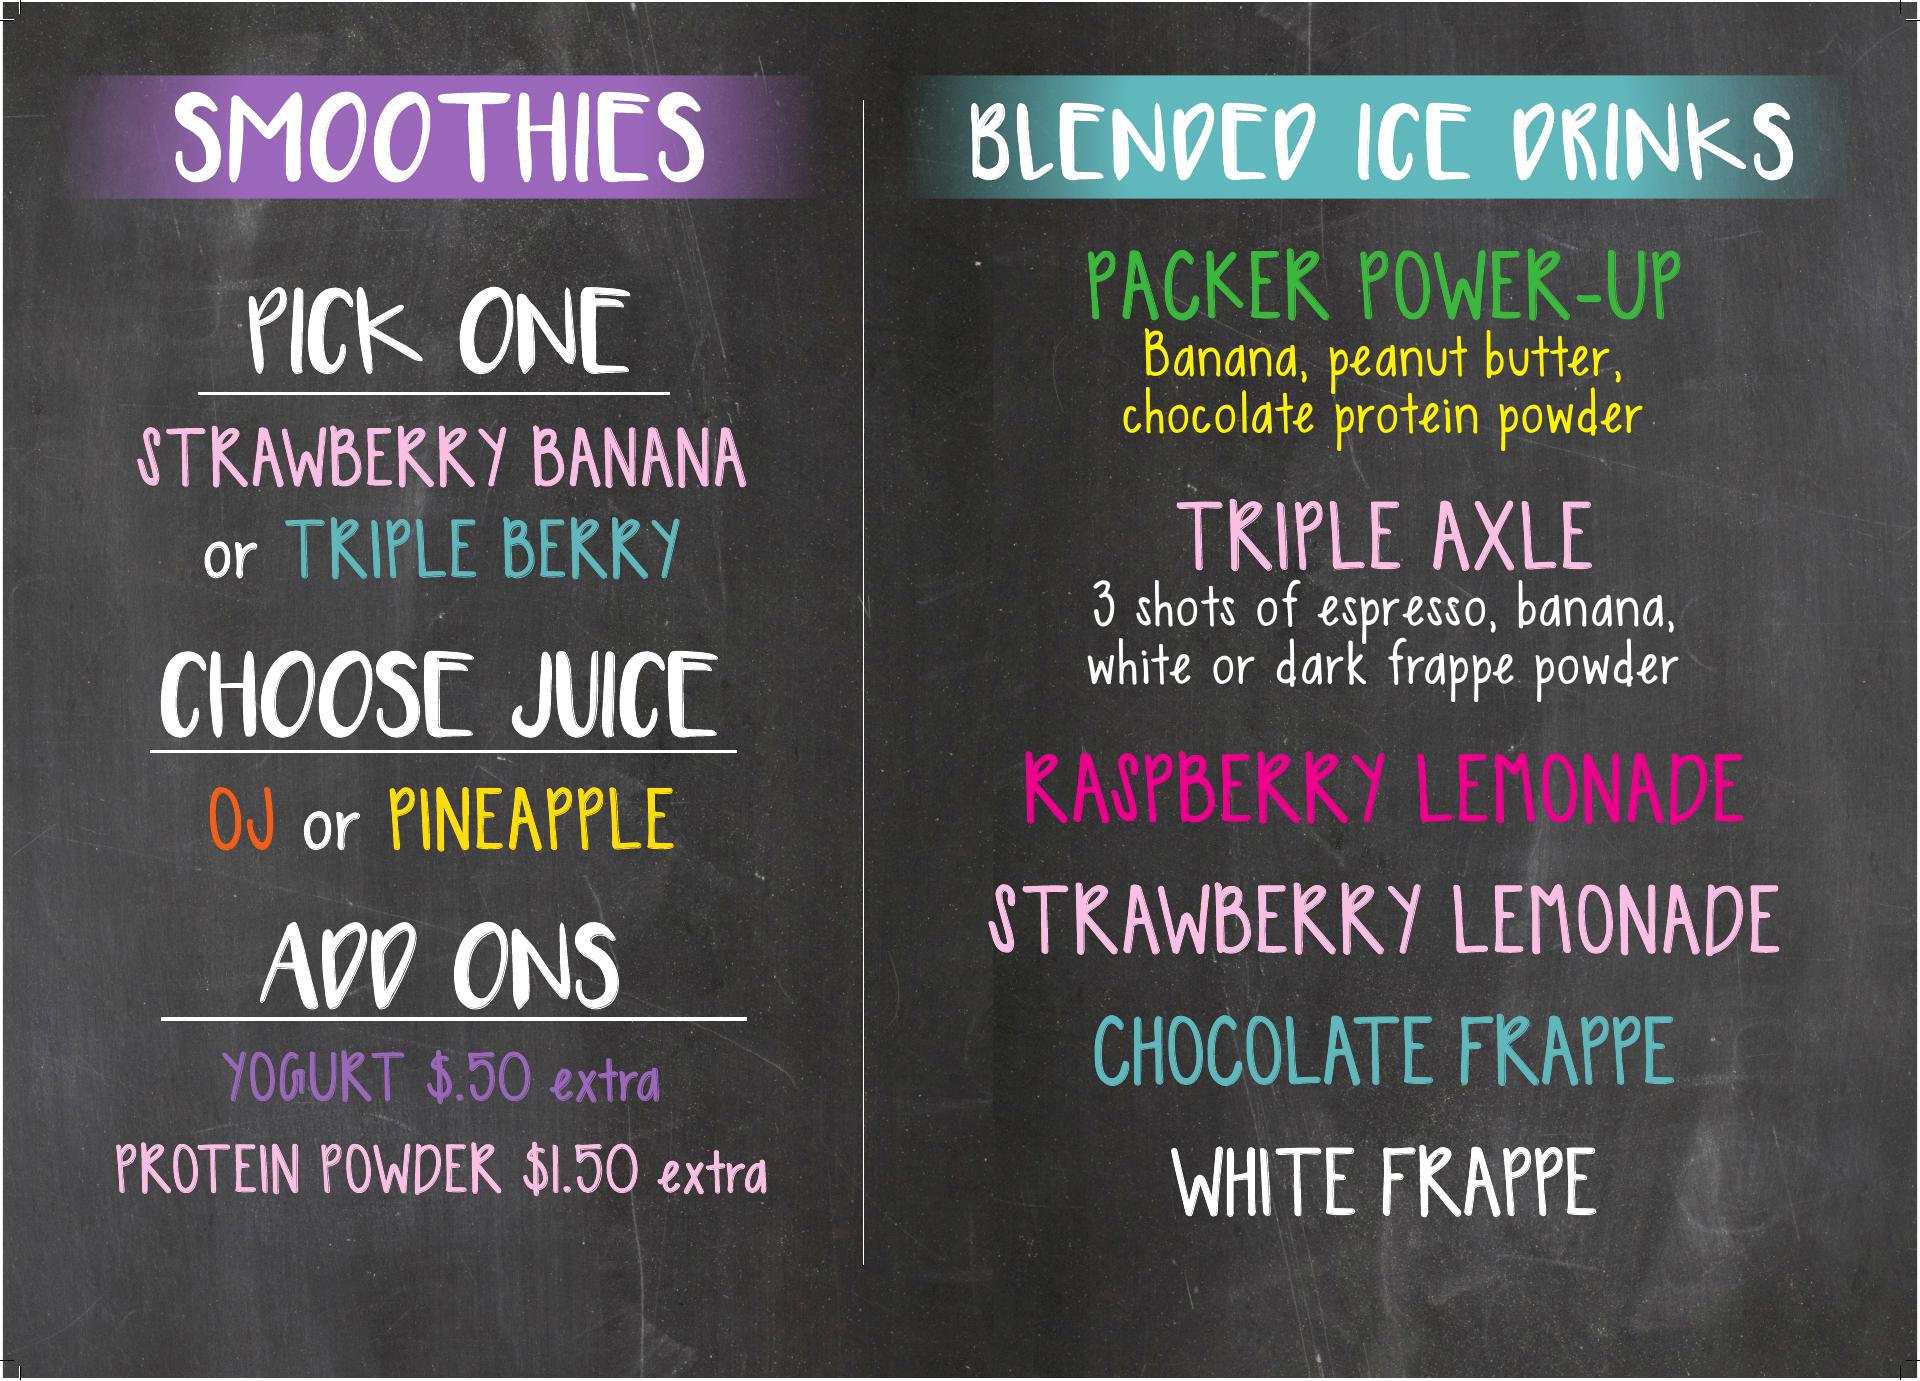 SMOOTHIES
PICK ONE
STRAWBERRY BANANA
or TRIPLE BERRY
CHOOSE JUICE
OJ or PINEAPPLE
ADD ONS
YOGURT $.50 extra
PROTEIN POWDER $1.50 extra
BLENDED ICE DRINKS
PACKER POWER-UP
Banana, peanut butter,
chocolate protein powder
TRIPLE AXLE
3 shots of espresso, banana,
white or dark frappe powder
RASPBERRY LEMONADE
STRAWBERRY LEMONADE
CHOCOLATE FRAPPE
WHITE FRAPPE